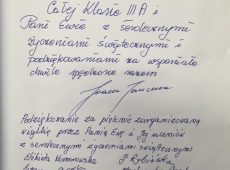 Całej Klasie III A i
Pani Ewie z serdecznymi
życzeniami świątecznymi i
podziękowaniami za wspaniałe
chwile spędzone razem
Podziękowanie za pięknie zorganizowaną
wigilię przez Panią Ewę i Jej uczniów
z serdecznymi życzeniami świątecznymi
Elżbieta